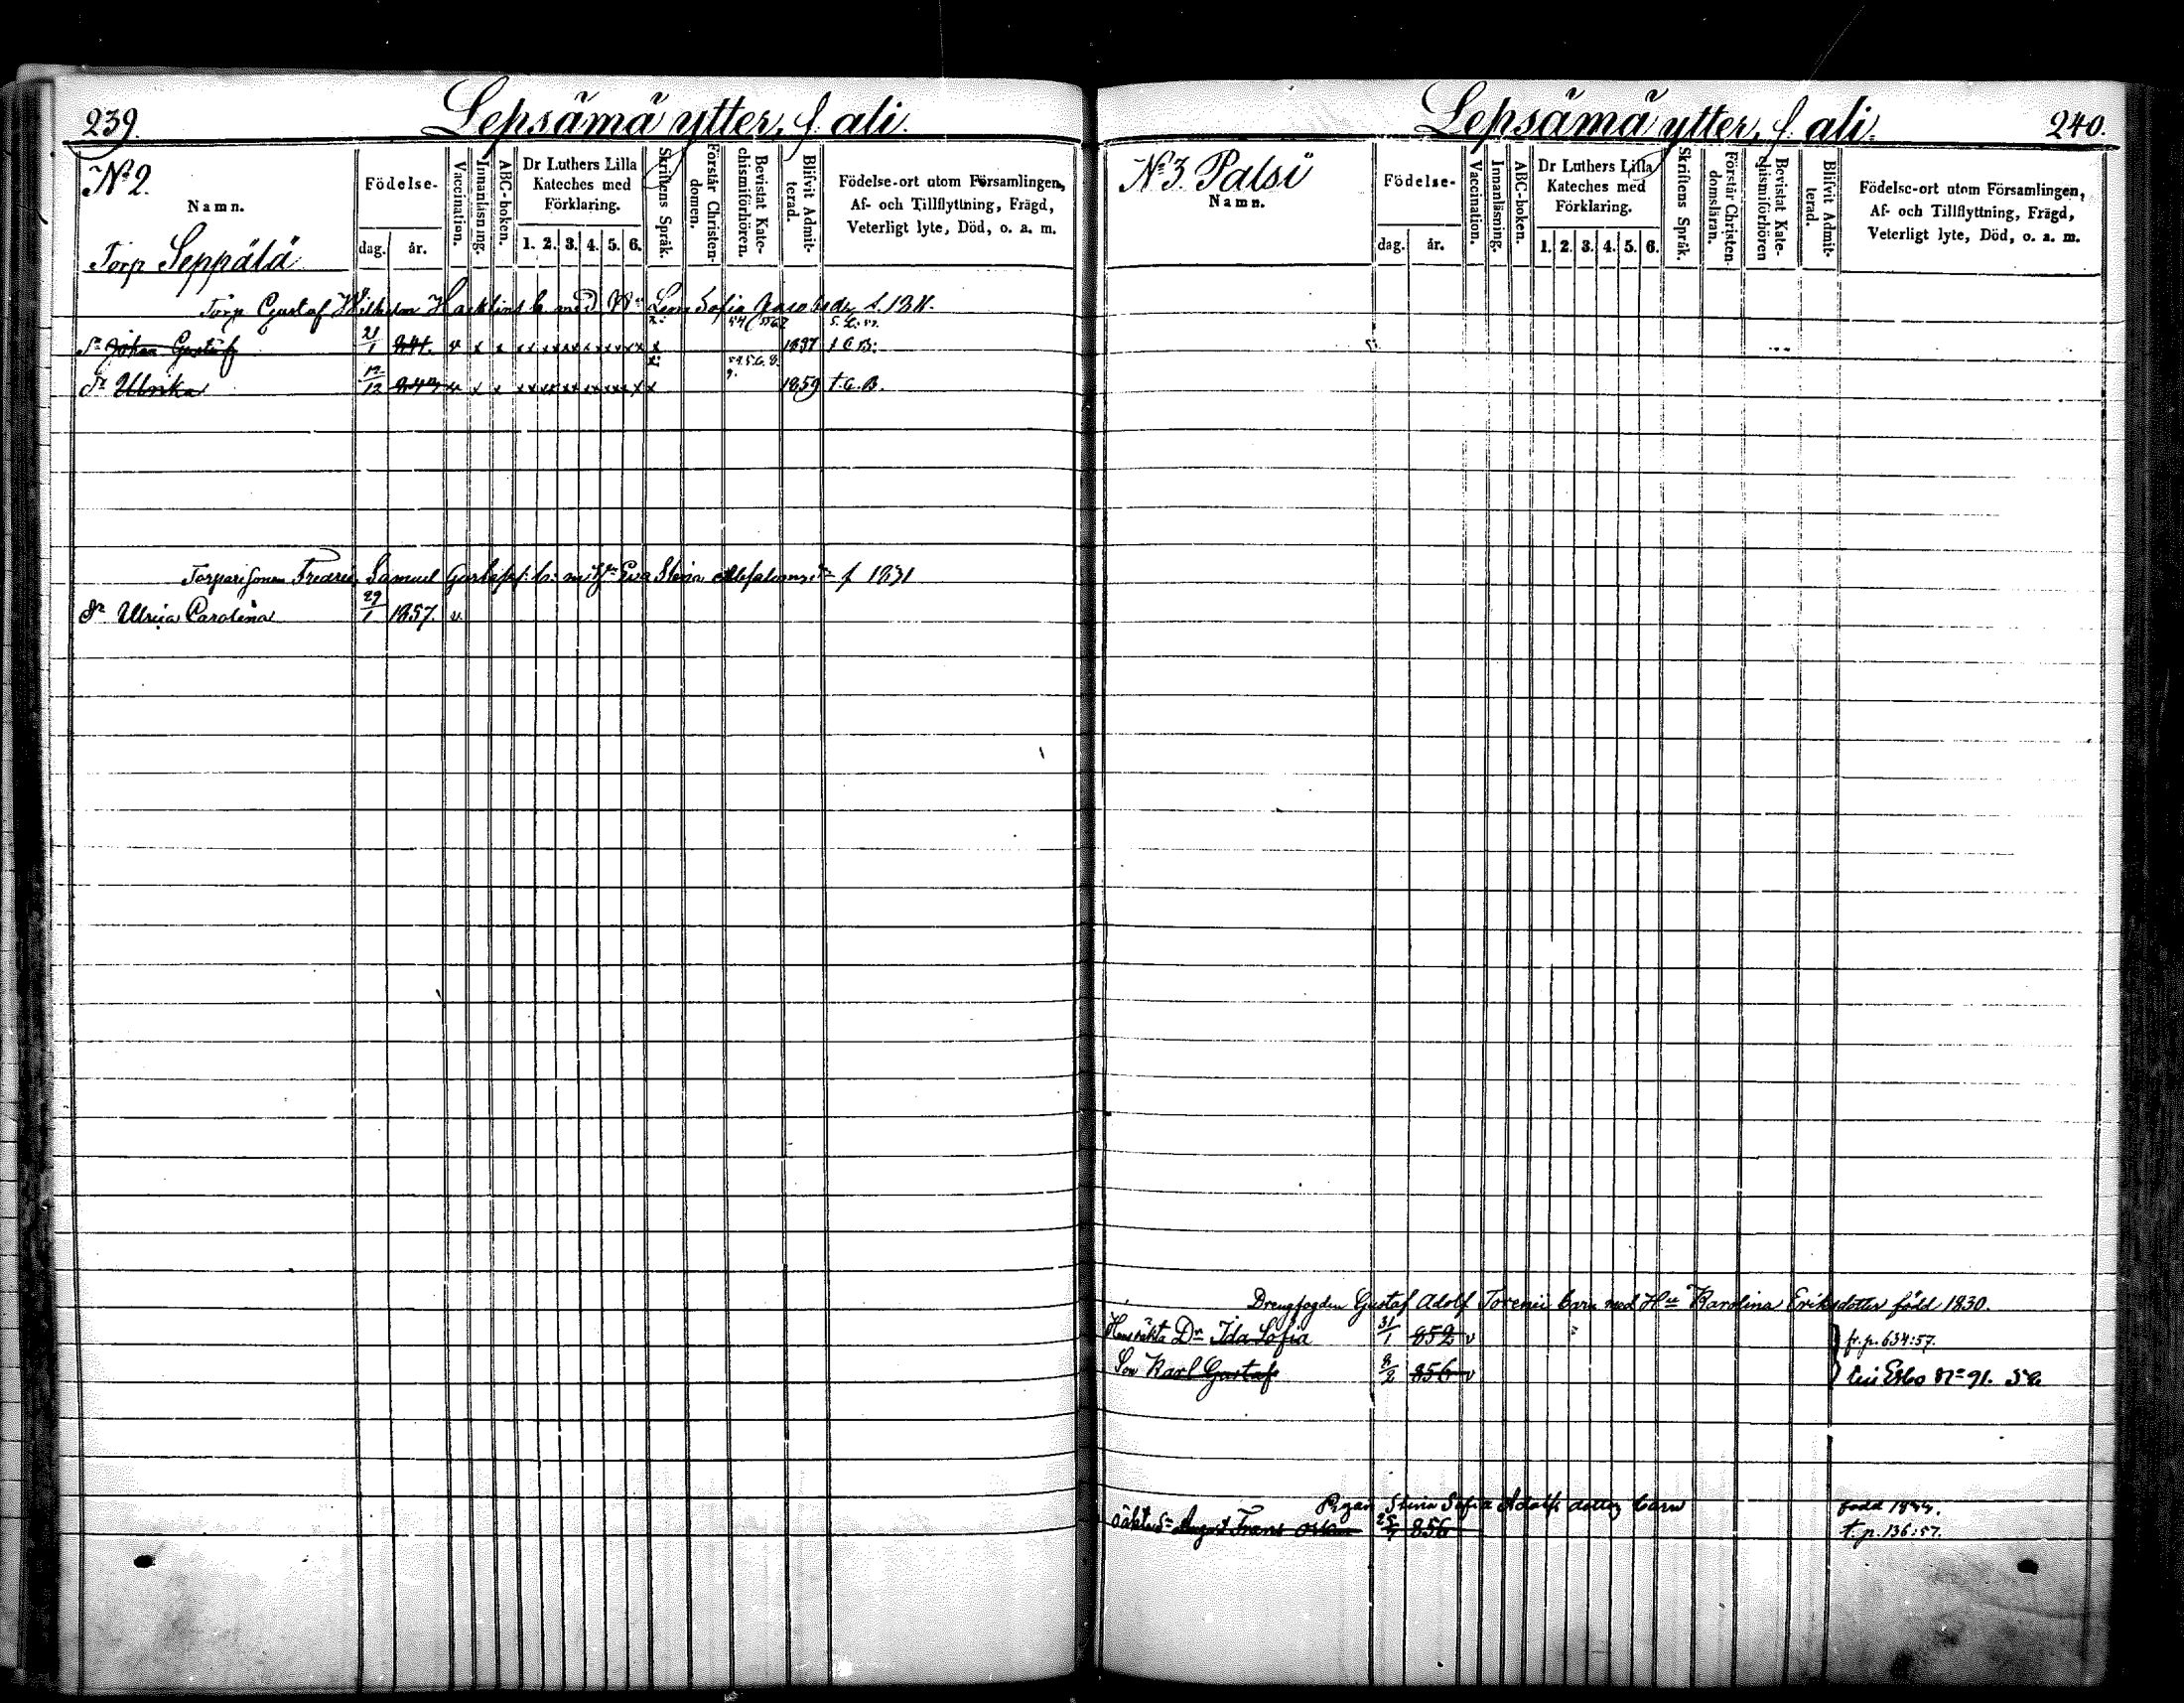 239.
Lepsämä ytter, f. ali.
No 2.
Namn.
Torp Seppälä
Födelse-
dag.
år.
Vaccination.
Innanläsning.
ABC-boken.
Dr Luthers Lilla
Kateches med
Förklaring.
1. 2. 3. 4. 5. 6.
Skriftens Språk.
Förstår Christen-
domen.
Bevistat Kate-
chismiförhören.
Blifvit Admit-
terad.
Födelse-ort utom Församlingen,
Af- och Tillflyttning, Frägd,
Veterligt lyte, Död, o. a. m.
Torp Gustaf Wilhelm b. med Lena Sofia
Sn Johan Gustaf 21/1 841. v x x 1857 t C B.
Dr Ulrika 12/12 v x x 1859 t. C. B.
Samuel b. m. Hu Eva Stina f 1831
Dr Ulrica Carolina 29/1 1857. v.
Lepsämä ytter, f. ali.
240.
No 3. Palsi
Namn.
Födelse-
dag.
år.
Vaccination.
Innanläsning.
ABC-boken.
Dr Luthers Lilla
Kateches med
Förklaring.
1. 2. 3. 4. 5. 6.
Skriftens Språk.
Förstår Christen-
domsläran.
Bevistat Kate-
chismiförhören
Blifvit Admit-
terad.
Födelse-ort utom Församlingen,
Af- och Tillflyttning, Frägd,
Veterligt lyte, Död, o. a. m.
Drengfogden Gustaf Adolf Torenii barn med Hu Karolina Eriksdotter född 1830.
Dr Ida Sofia 31/1 852 v fr. p. 634:57.
Son Karl Gustaf 8/2 856 v Esbo No 91.
Pigan Stina Sofia Adolfsdotters barn född
oäkta Sn August Frans Oskar 856 t. p. 136:57.